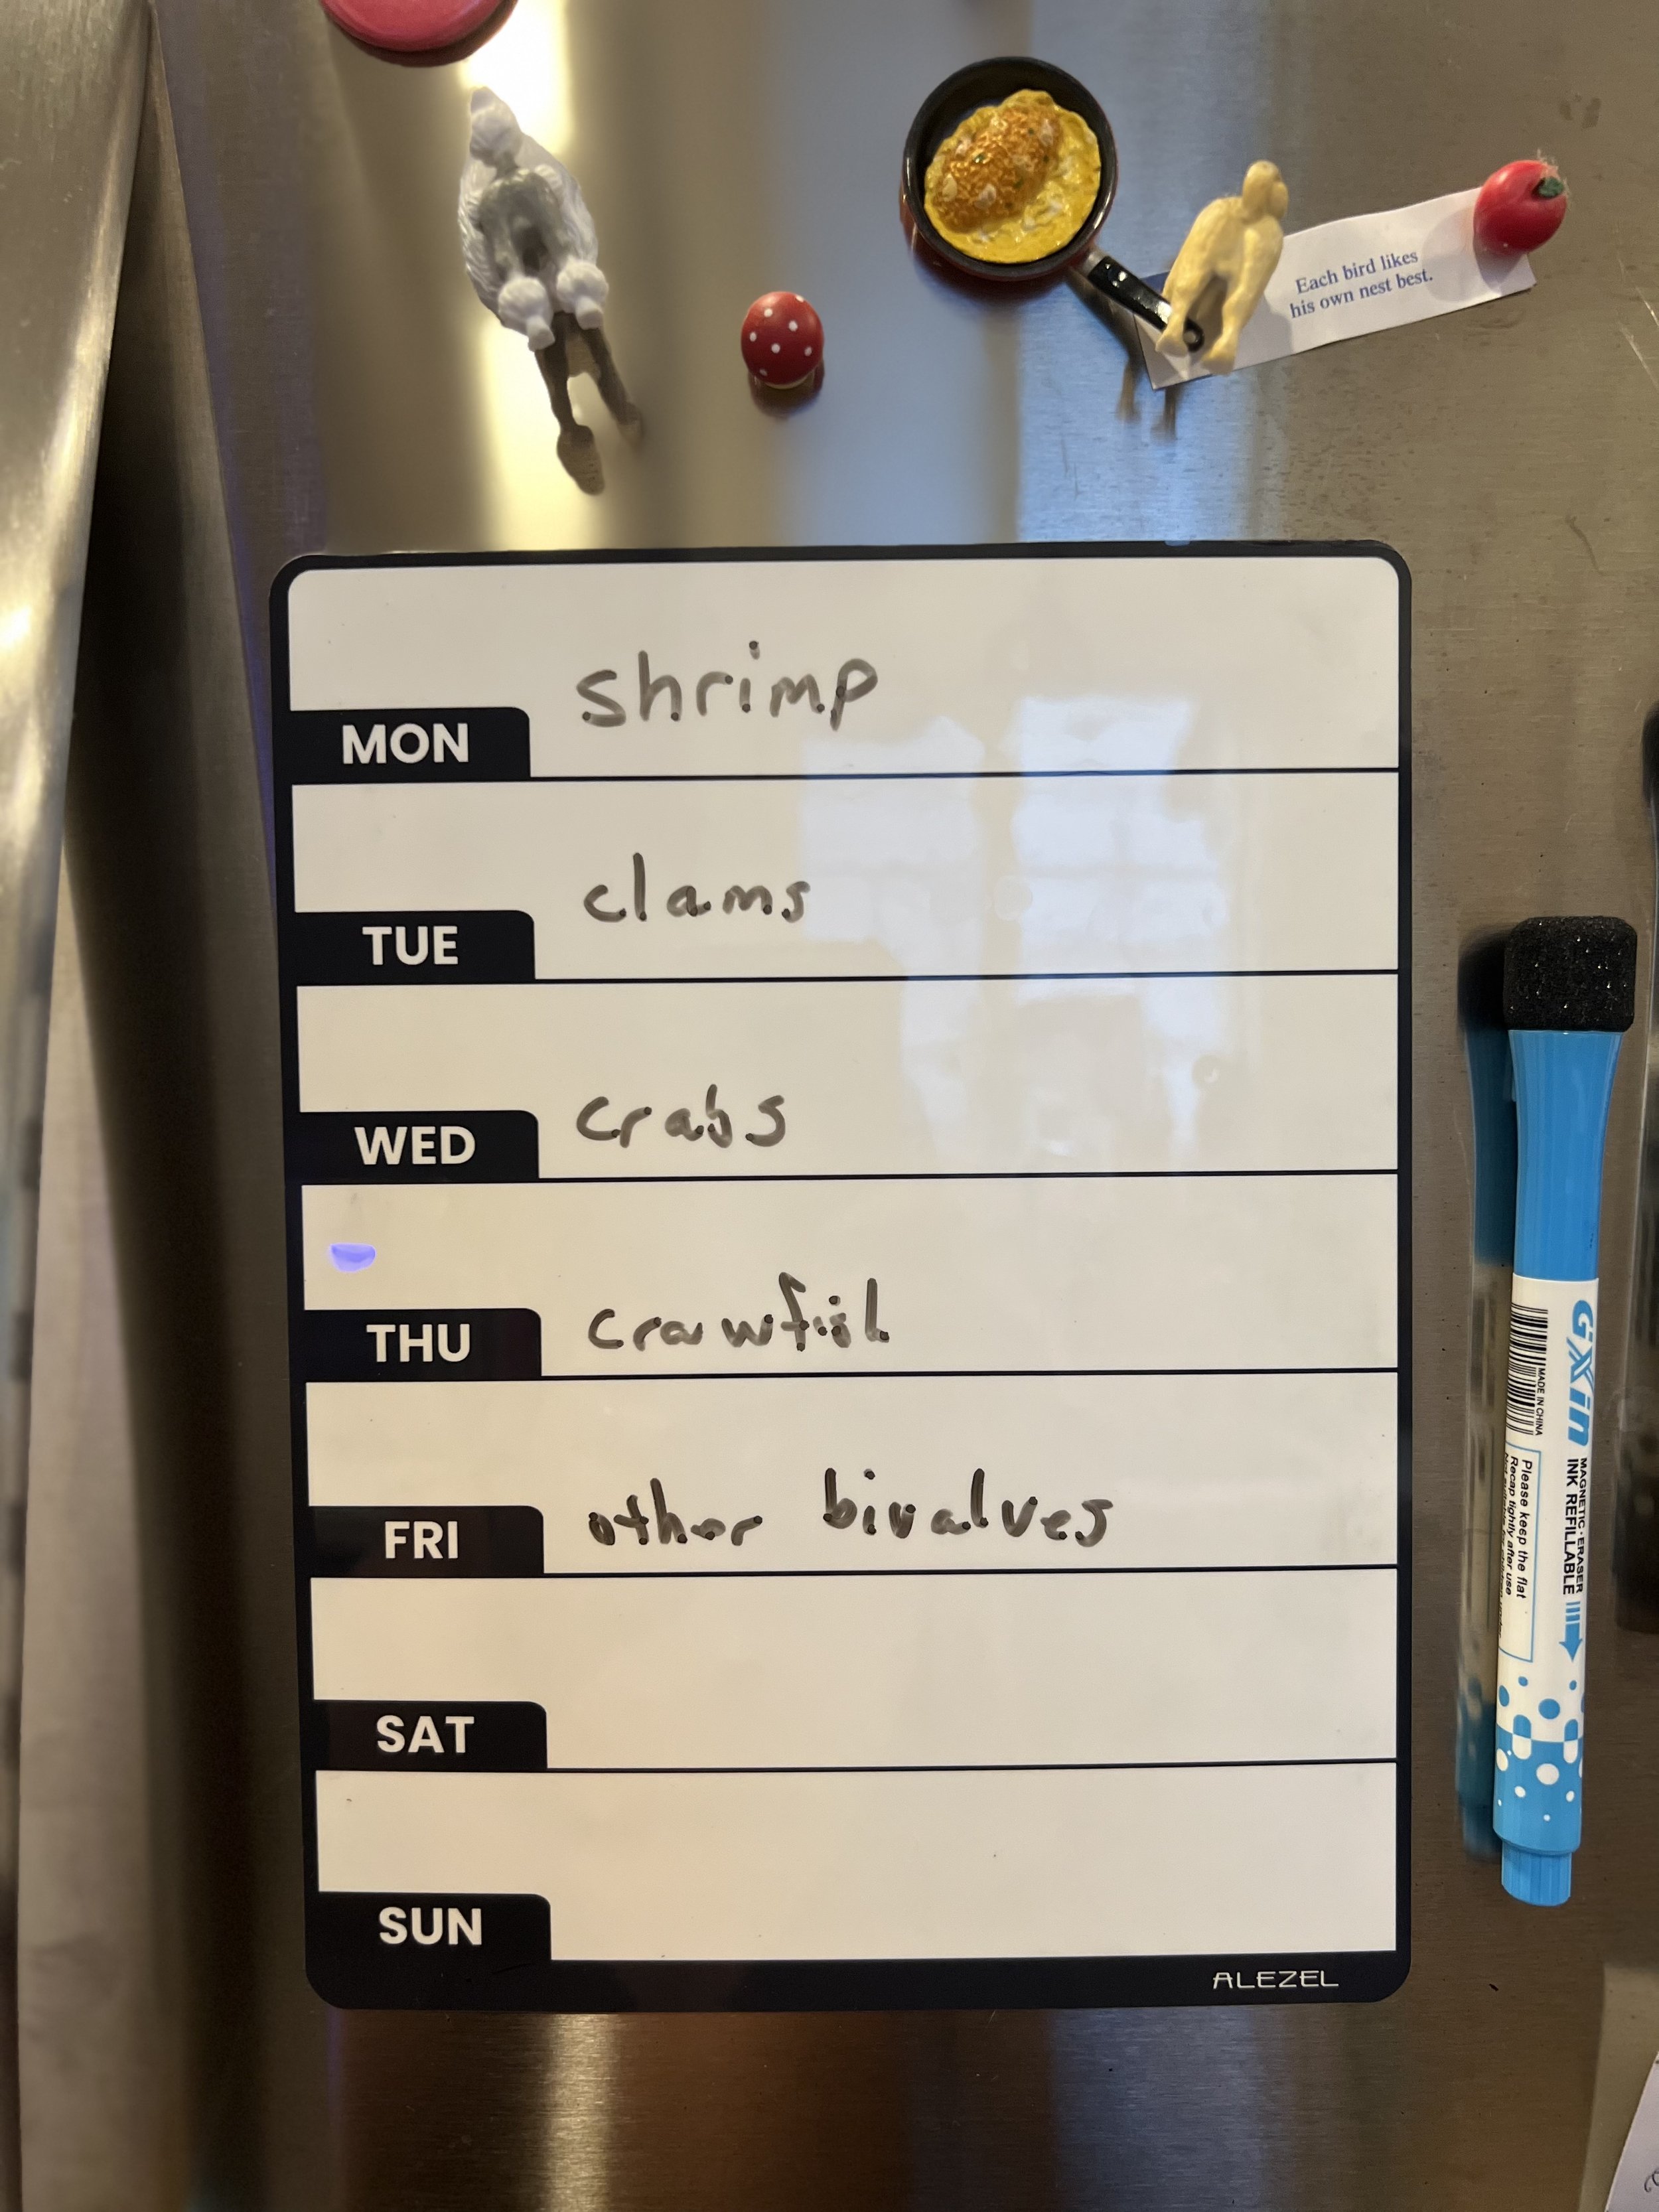 Each bird likes
his own nest best.
shrimp
MON
clams
TUE
crabs
WED
crawfish
THU
other bivalves
FRI
SAT
SUN
ALEZEL
GXin
MADE IN CHINA
MAGNETIC·ERASER
INK REFILLABLE
Please keep the flat
Recap tightly after use